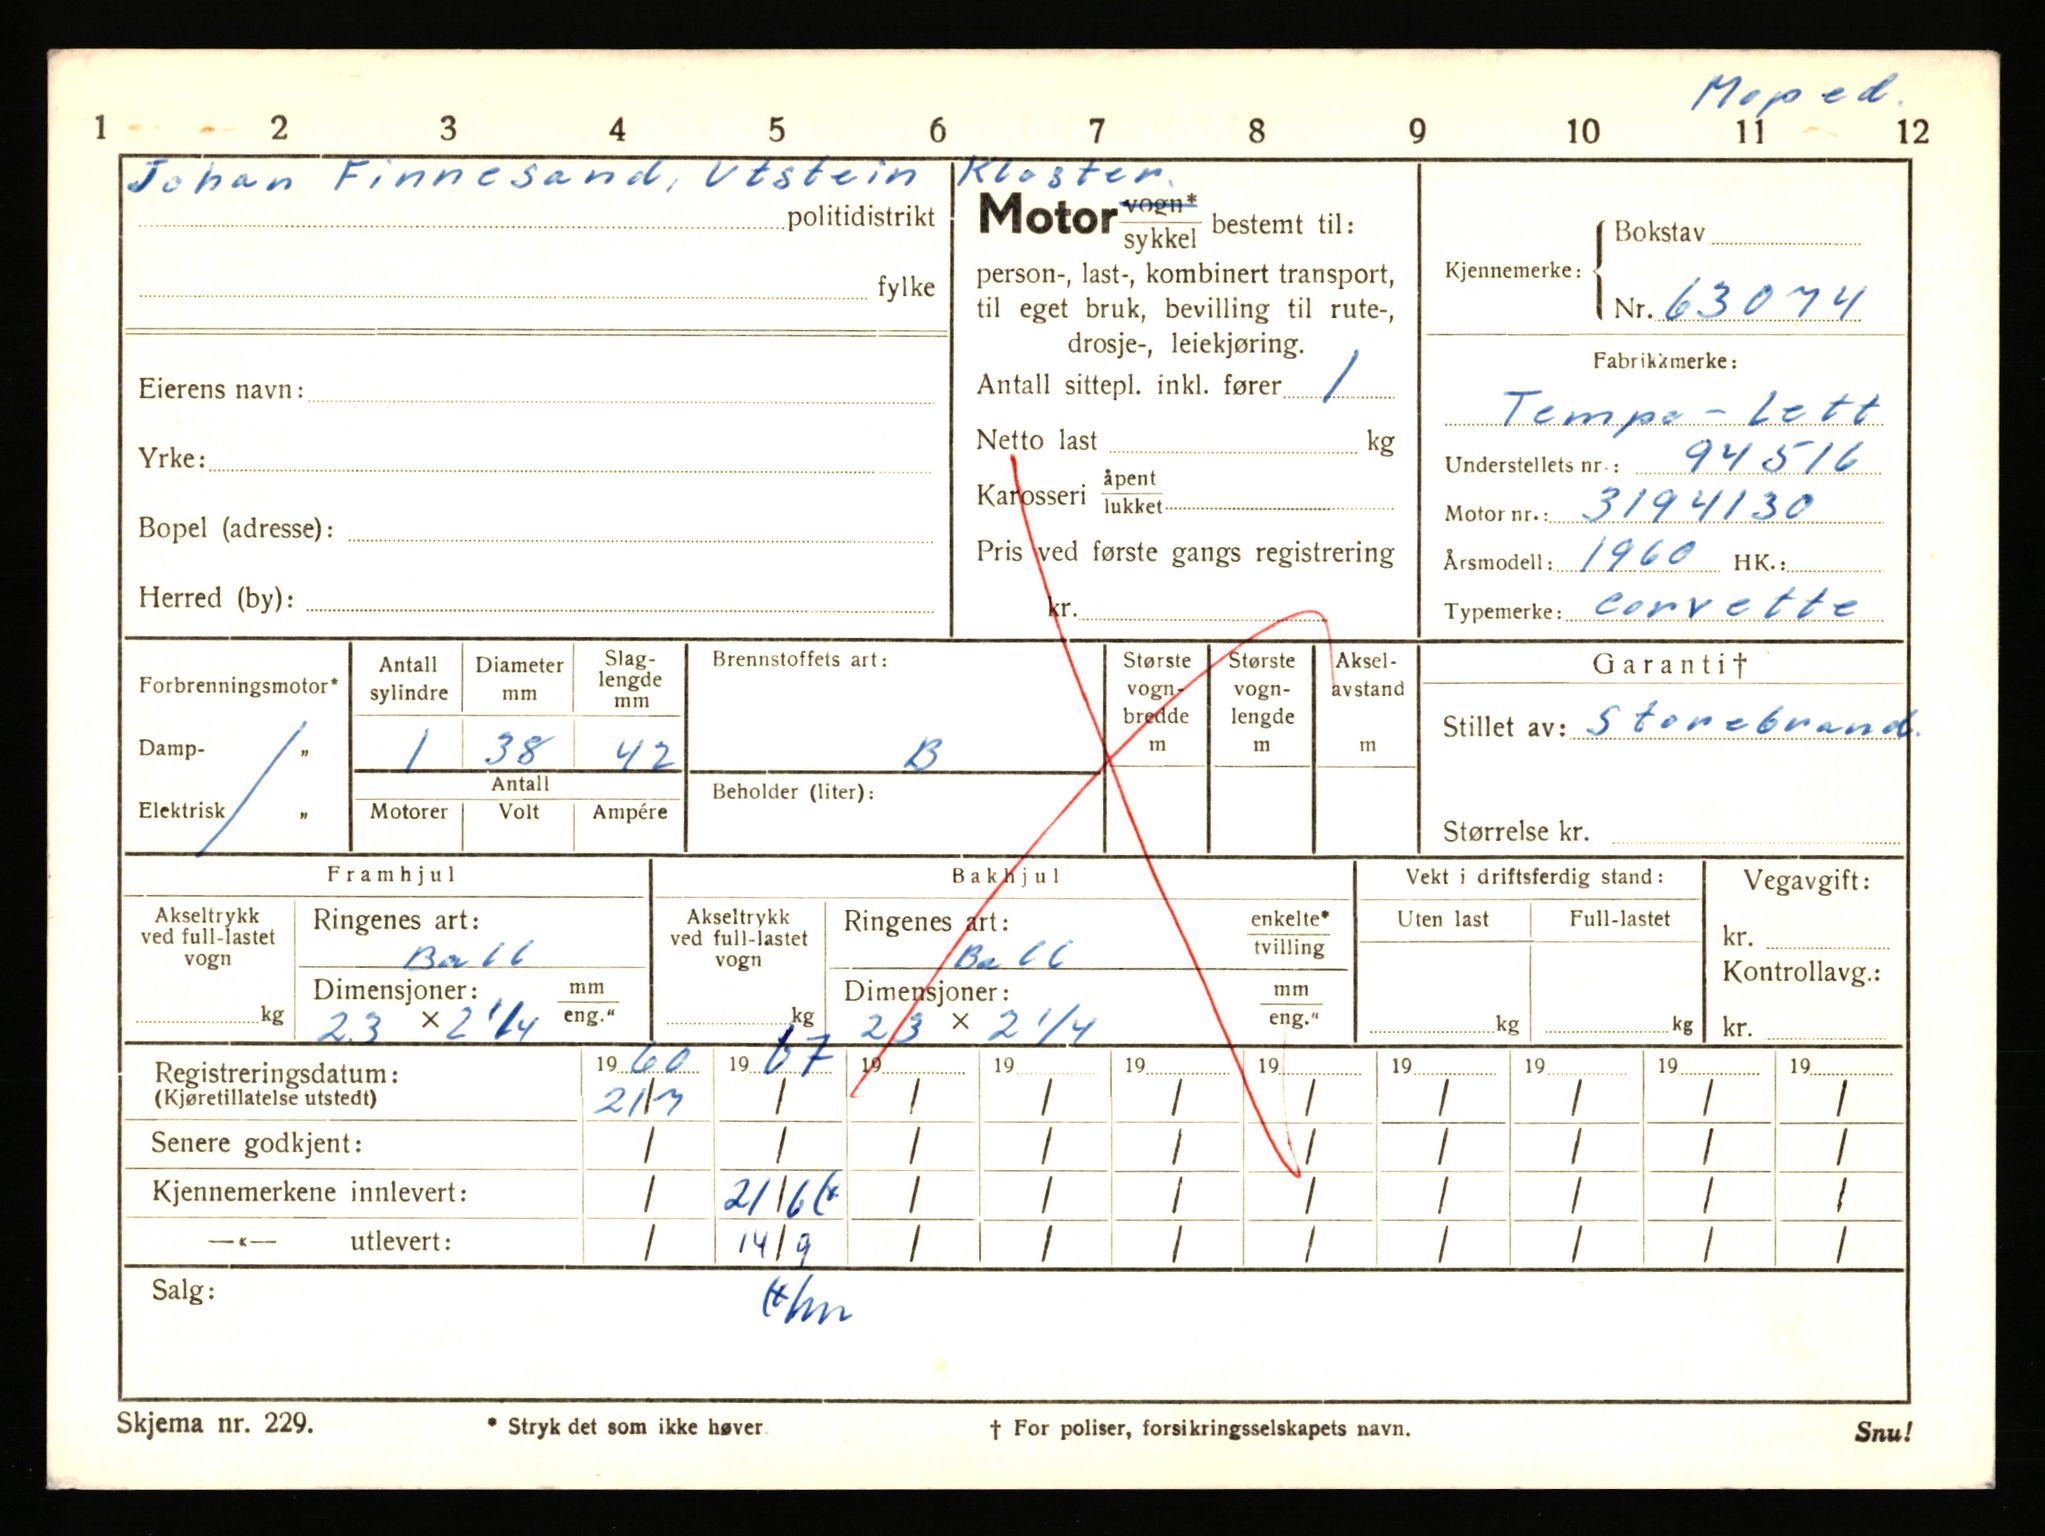 Moped.
1 2 3 4 5 6 7 8 9 10 11 12
Johan Finnesand, Utstein Kloster.
politidistrikt
fylke
Eierens navn:
Yrke:
Bopel (adresse):
Herred (by):
Motor vogn* / sykkel bestemt til:
person-, last-, kombinert transport,
til eget bruk, bevilling til rute-,
drosje-, leiekjøring.
Antall sittepl. inkl. fører 1
Netto last kg
Karosseri åpent / lukket
Pris ved første gangs registrering
kr.
Kjennemerke: Bokstav
Nr. 63074
Fabrikkmerke:
Tempo - Lett
Understellets nr.: 94516
Motor nr.: 3194130
Årsmodell: 1960 HK.:
Typemerke: Corvette
Forbrenningsmotor*
Damp- "
Elektrisk "
Antall sylindre
1
Diameter mm
38
Slag-lengde mm
42
Antall
Motorer Volt Ampére
Brennstoffets art:
B
Beholder (liter):
Største vogn-bredde m
Største vogn-lengde m
Aksel-avstand m
Garanti†
Stillet av: Storebrand.
Størrelse kr.
Framhjul
Akseltrykk ved full-lastet vogn
kg
Ringenes art:
Ball
Dimensjoner: mm / eng."
23 × 2 1/4
Bakhjul
Akseltrykk ved full-lastet vogn
kg
Ringenes art: enkelte* / tvilling
Ball
Dimensjoner: mm / eng."
23 × 2 1/4
Vekt i driftsferdig stand:
Uten last Full-lastet
kg kg
Vegavgift:
kr.
Kontrollavg.:
kr.
Registreringsdatum: 1960 1967 19 19 19 19 19 19 19 19
(Kjøretillatelse utstedt) 21/7 / / / / / / / / /
Senere godkjent: / / / / / / / / / /
Kjennemerkene innlevert: / 21/6 (* / / / / / / / /
—«— utlevert: / 14/9 / / / / / / / /
Salg:
Skjema nr. 229.
* Stryk det som ikke høver
† For poliser, forsikringsselskapets navn.
Snu!